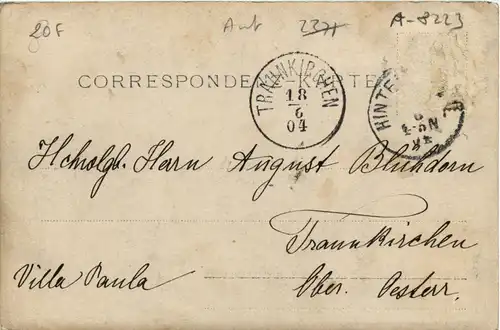 20F Aut 2371 A-8223
CORRESPONDENZ-KARTE
TRAUNKIRCHEN
18
6
04
HINTE
Hchwlgb. Herrn August Blühdorn
Traunkirchen
Villa Paula Ober. Oesterr.